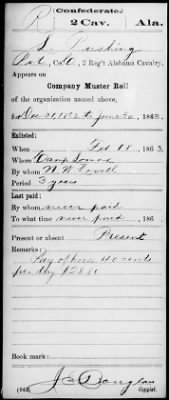 (Confederate)
R 2 Cav. Ala.
Pvt, Co. C, 2 Reg't Alabama Cavalry.
Appears on
Company Muster Roll
of the organization named above,
for Dec 31, 1862 to June 30, 1863.
Enlisted:
When Feb 18, 1863.
Where Camp
By whom W. W.
Period 3 years
Last paid:
By whom never paid
To what time never paid, 186 .
Present or absent Present
Remarks:
Pay of horse 40 cents
per day $28.80
Book mark:
J. Douglas
(642) Copyist.